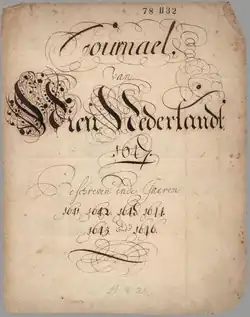 78 H 32
Journael,
van
Nieu Nederlandt
1647.
Beschreven inde Jaeren
1641 1642 1643 1644
1645 1646.